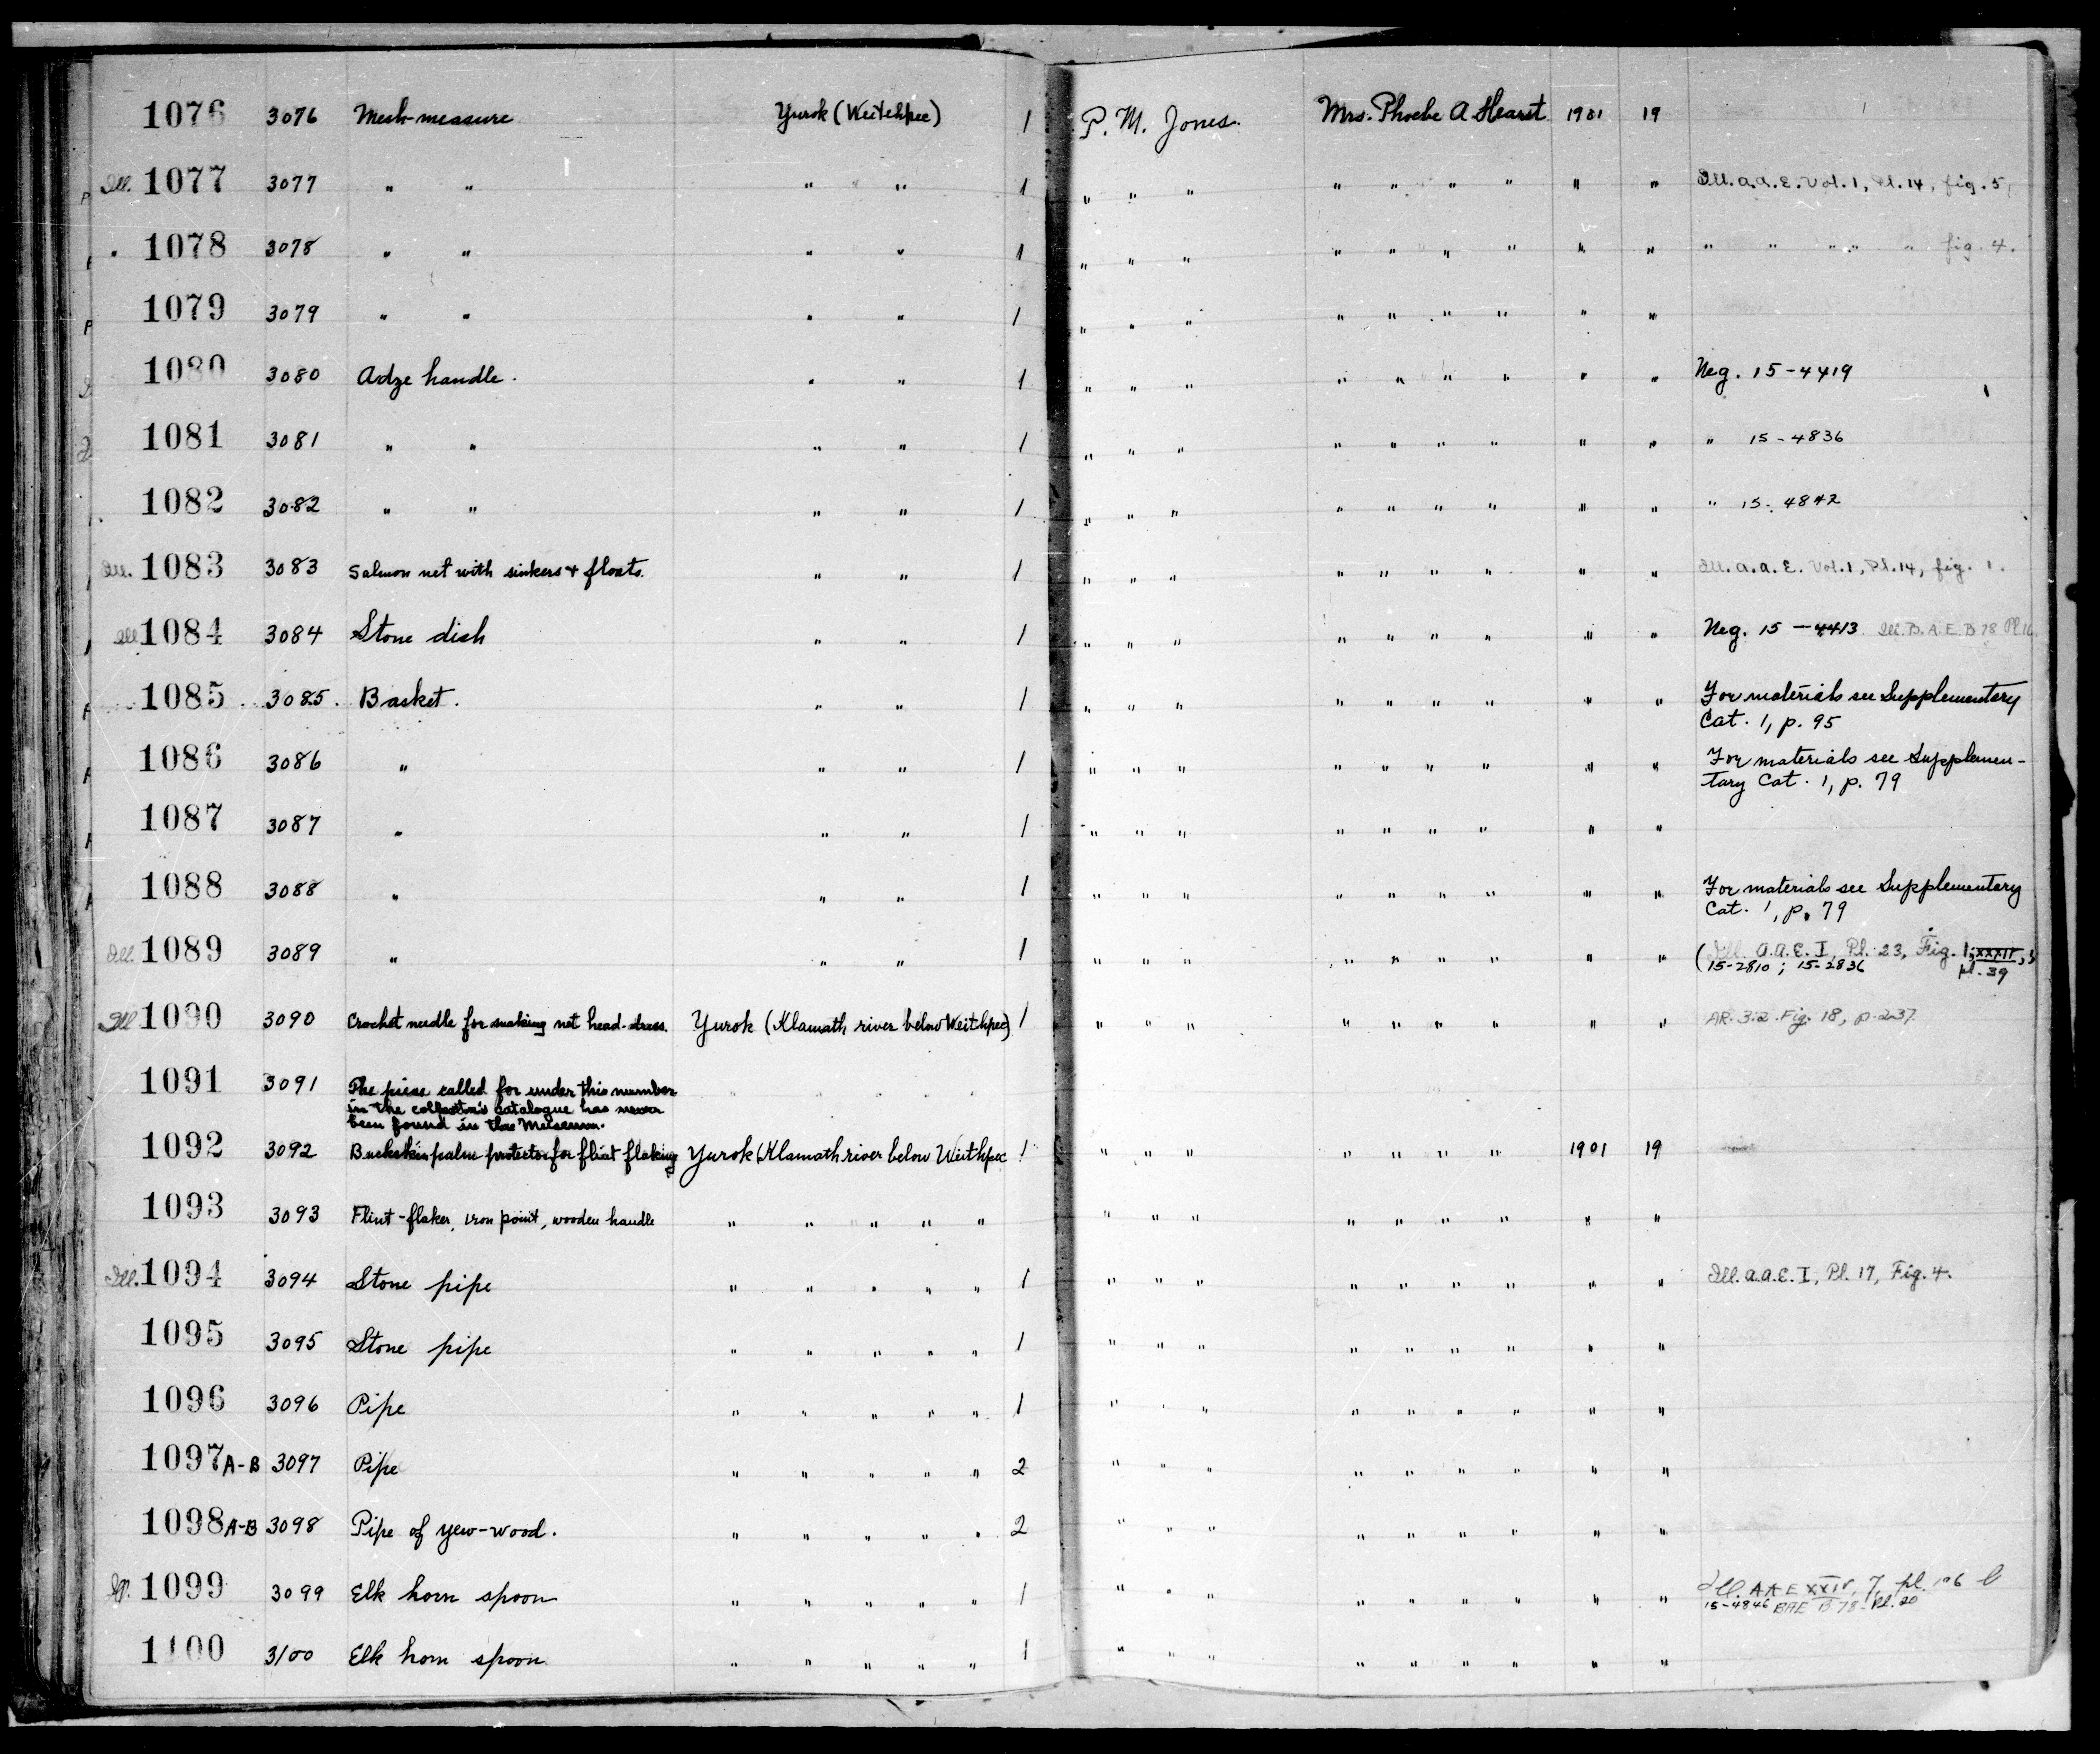 1076 3076 Mesh-measure Yurok (Weitchpec) 1 P. M. Jones. Mrs. Phoebe A Hearst 1901 19
Ill. 1077 3077 " " " " 1 " " " " " " " " " Ill. A.A.E. Vol. 1, Pl. 14, fig. 5,
" 1078 3078 " " " " 1 " " " " " " " " " " " " " " fig. 4.
1079 3079 " " " " 1 " " " " " " " " "
1080 3080 Adze handle. " " 1 " " " " " " " " " Neg. 15-4419
1081 3081 " " " " 1 " " " " " " " " " " 15-4836
1082 3082 " " " " 1 " " " " " " " " " " 15-4842
Ill. 1083 3083 Salmon net with sinkers & floats. " " 1 " " " " " " " " " Ill. A.A.E. Vol. 1, Pl. 14, fig. 1.
Ill 1084 3084 Stone dish " " 1 " " " " " " " " " Neg. 15-4413 Ill. B.A.E. B 78 Pl. 16.
1085 3085. Basket. " " 1 " " " " " " " " " For materials see Supplementary
Cat. 1, p. 95
1086 3086 " " " 1 " " " " " " " " " For materials see Supplemen-
tary Cat. 1, p. 79
1087 3087 " " " 1 " " " " " " " " "
1088 3088 " " " 1 " " " " " " " " " For materials see Supplementary
Cat. 1, p. 79
Ill. 1089 3089 " " " 1 " " " " " " " " " (Ill. A.A.E. I, Pl. 23, Fig. 1;
15-2810; 15-2836 pl. 39
Ill 1090 3090 Crochet needle for making net head-dress. Yurok (Klamath river below Weitchpec) 1 " " " " " " " " " AR. 3:2 Fig. 18, p. 237
1091 3091 The piece called for under this number
in the collector's catalogue has never
been found in the Museum.
1092 3092 Buckskin palm protector for flint flaking Yurok (Klamath river below Weitchpec 1 " " " " " " " 1901 19
1093 3093 Flint-flaker, iron point, wooden handle " " " " " " " " " " " " " "
Ill. 1094 3094 Stone pipe " " " " " 1 " " " " " " " " " Ill. A.A.E. I, Pl. 17, Fig. 4.
1095 3095 Stone pipe " " " " " 1 " " " " " " " " "
1096 3096 Pipe " " " " " 1 " " " " " " " " "
1097 A-B 3097 Pipe " " " " " 2 " " " " " " " " "
1098 A-B 3098 Pipe of yew-wood. " " " " " 2 " " " " " " " " "
Ill. 1099 3099 Elk horn spoon " " " " " 1 " " " " " " " " " Ill. AAE XXIV, 7, pl. 106 b
15-4846 BAE B 78 Pl. 20
1100 3100 Elk horn spoon " " " " " 1 " " " " " " " " "